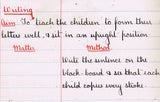 Writing
Aim: To teach the children to form their
letters well, & sit in an upright position.
Matter Method
Write the sentence on the
black-board & see that each
child copies every stroke.